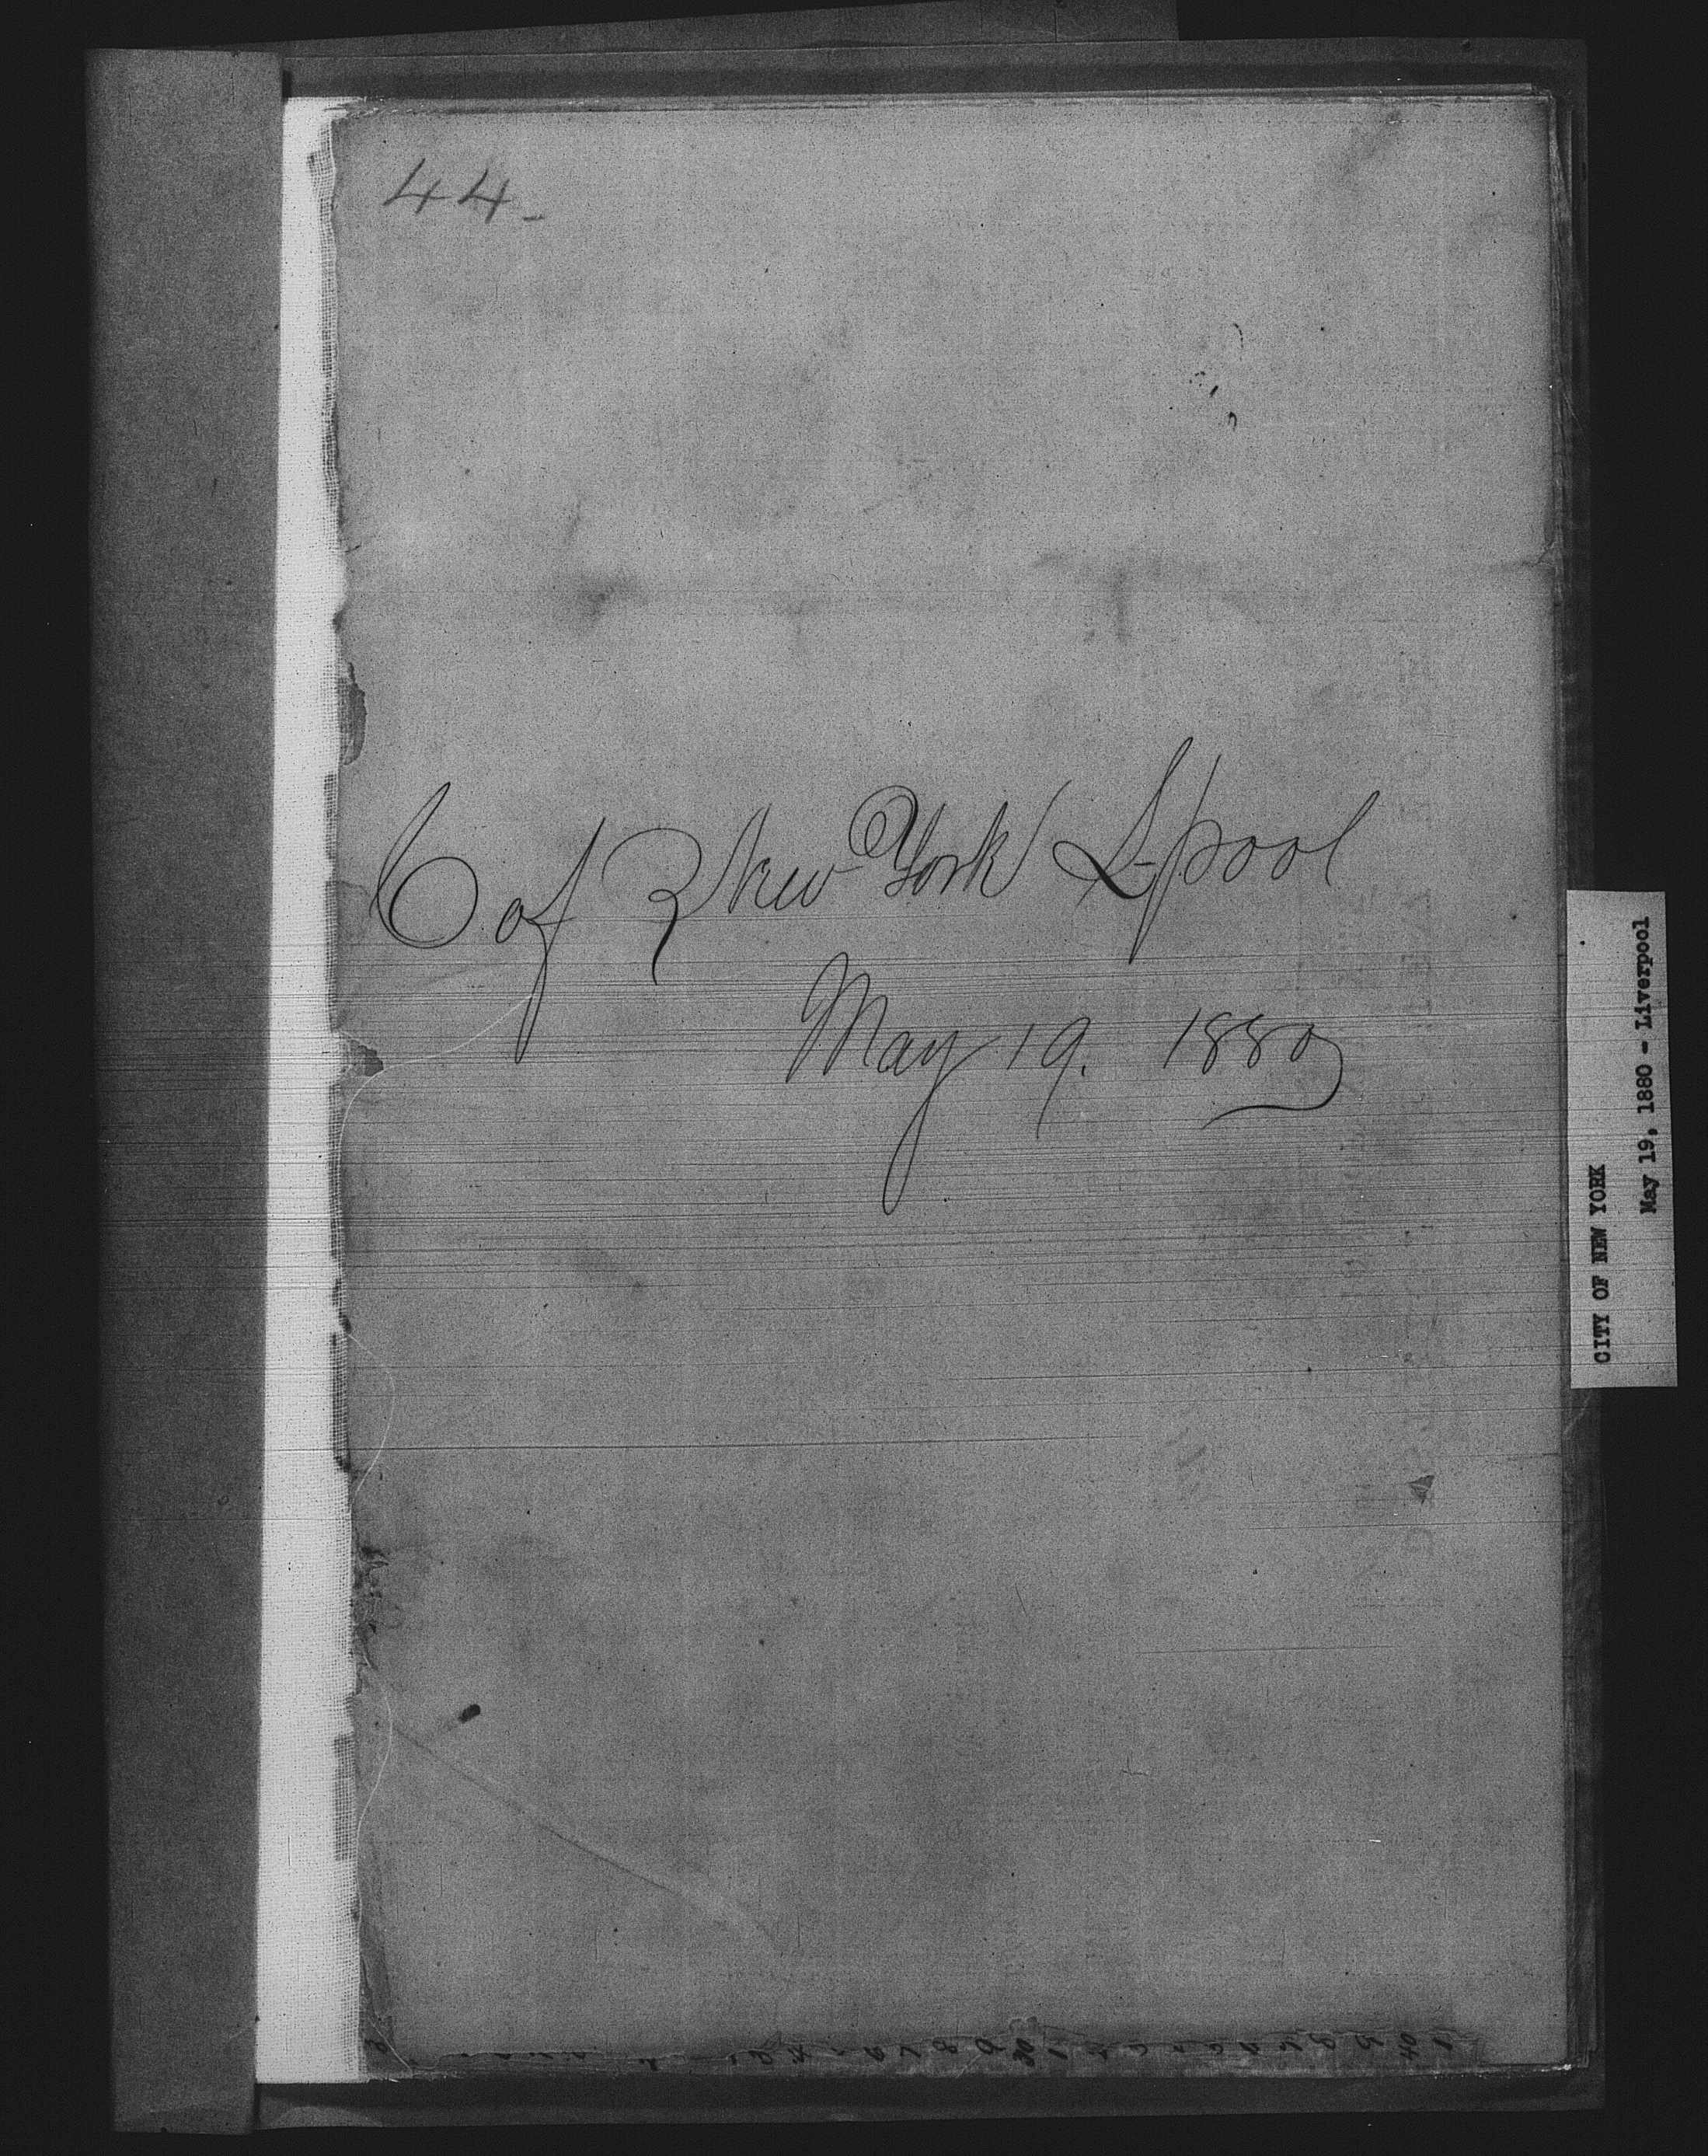 44-
C of New York L-pool
May 19. 1880
CITY OF NEW YORK
May 19, 1880 - Liverpool